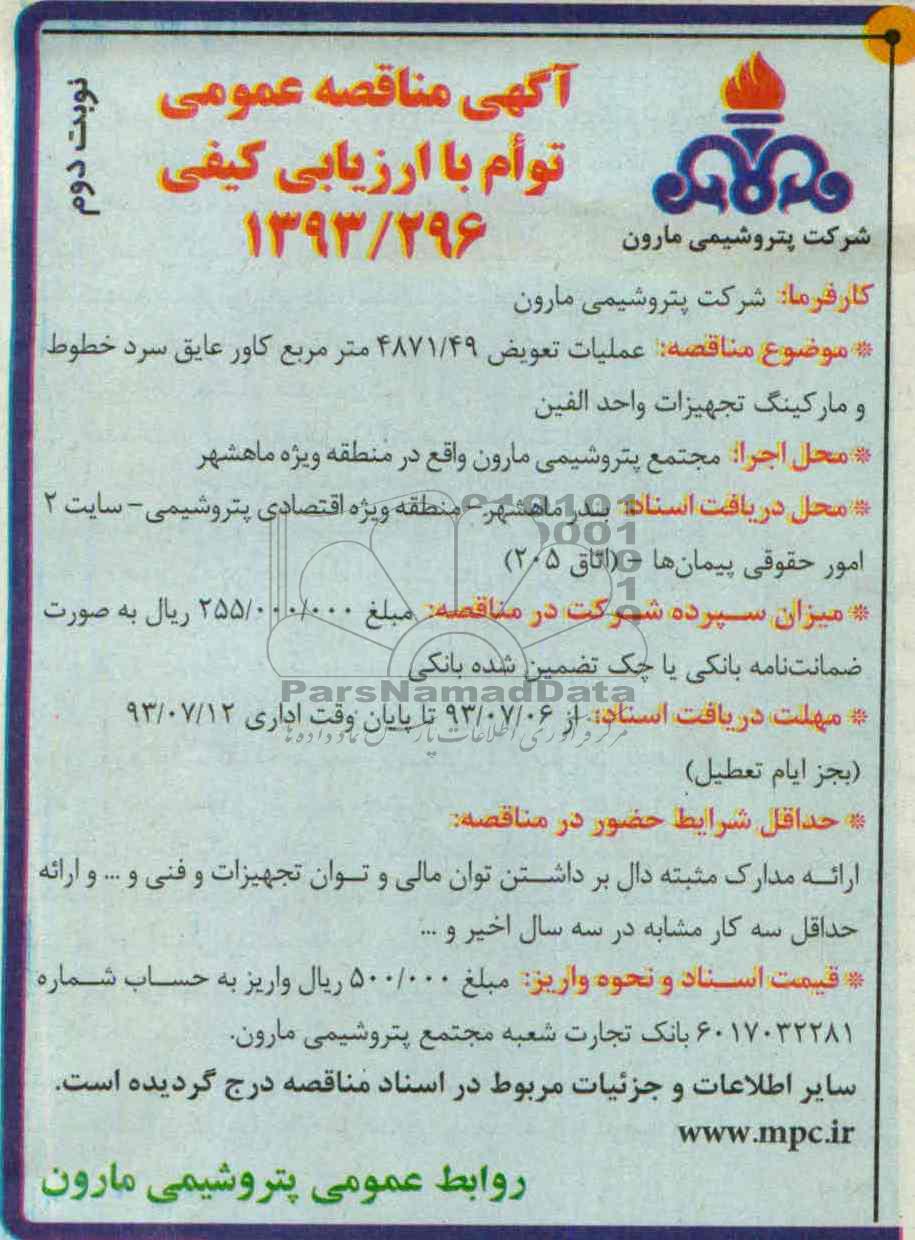 نوبت دوم
آگهی مناقصه عمومی
توأم با ارزیابی کیفی
۱۳۹۳/۲۹۶
شرکت پتروشیمی مارون
کارفرما: شرکت پتروشیمی مارون
* موضوع مناقصه: عملیات تعویض ۴۸۷۱/۴۹ متر مربع کاور عایق سرد خطوط
و مارکینگ تجهیزات واحد الفین
* محل اجرا: مجتمع پتروشیمی مارون واقع در منطقه ویژه ماهشهر
* محل دریافت اسناد: بندر ماهشهر - منطقه ویژه اقتصادی پتروشیمی - سایت ۲
امور حقوقی پیمان‌ها - (اتاق ۲۰۵)
* میزان سپرده شرکت در مناقصه: مبلغ ۲۵۵/۰۰۰/۰۰۰ ریال به صورت
ضمانت‌نامه بانکی یا چک تضمین شده بانکی
ParsNamadData
* مهلت دریافت اسناد: از ۹۳/۰۷/۰۶ تا پایان وقت اداری ۹۳/۰۷/۱۲
مرکز فرآوری اطلاعات پارس نماد داده ها
(بجز ایام تعطیل)
* حداقل شرایط حضور در مناقصه:
ارائه مدارک مثبته دال بر داشتن توان مالی و توان تجهیزات و فنی و ... و ارائه
حداقل سه کار مشابه در سه سال اخیر و ...
* قیمت اسناد و نحوه واریز: مبلغ ۵۰۰/۰۰۰ ریال واریز به حساب شماره
۶۰۱۷۰۳۲۲۸۱ بانک تجارت شعبه مجتمع پتروشیمی مارون.
سایر اطلاعات و جزئیات مربوط در اسناد مناقصه درج گردیده است.
www.mpc.ir
روابط عمومی پتروشیمی مارون